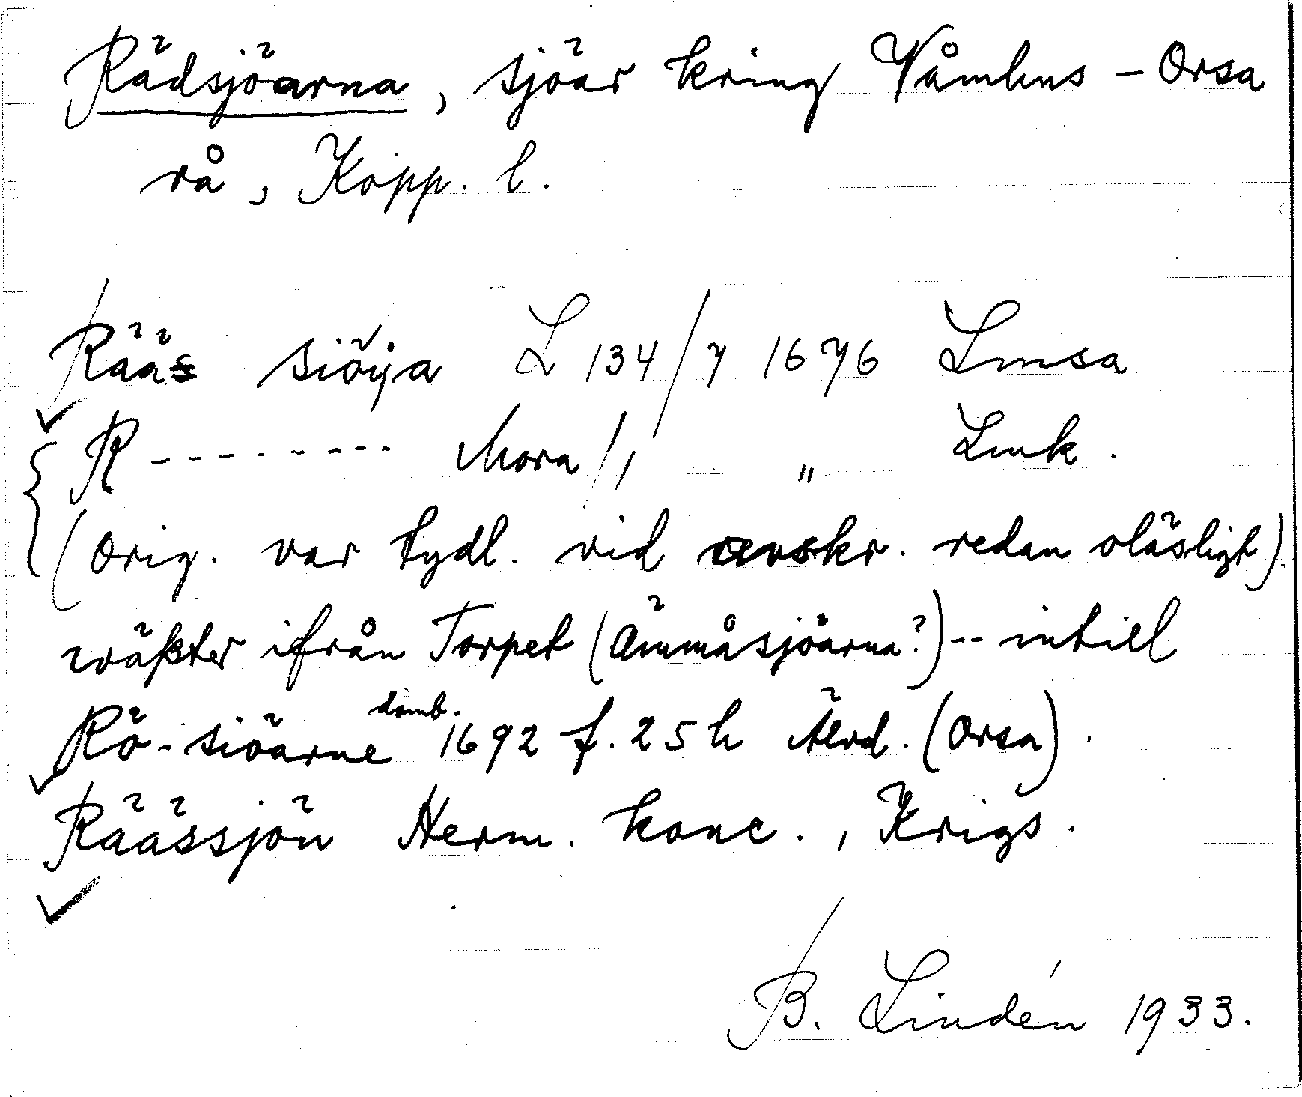 Rädsjöarna, sjöar kring Våmhus - Orsa
rå, Kopp. l.
Rääs siöya L 134/7 1676 Lmsa
R - - - - - - - - - Mora /1 — „ Lmk.
(Orig. var tydl. vid avskr. redan oläsligt).
wäster ifrån Torpet (Ämmåsjöarna?) -- intill
Rö-siöarne domb. 1692 f. 25 h Älvd. (Orsa).
Räässjön Herm. konc., Krigs.
B. Lindén 1933.